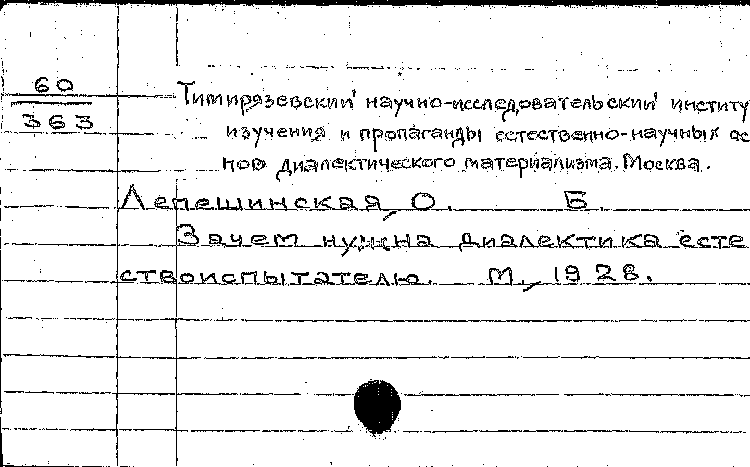 60
363
Тимирязевский научно-исследовательский институ
изучения и пропаганды естественно-научных ос
нов диалектического материализма. Москва.
Лепешинская, О. Б.
Зачем нужна диалектика есте
ствоиспытателю. М., 1928.